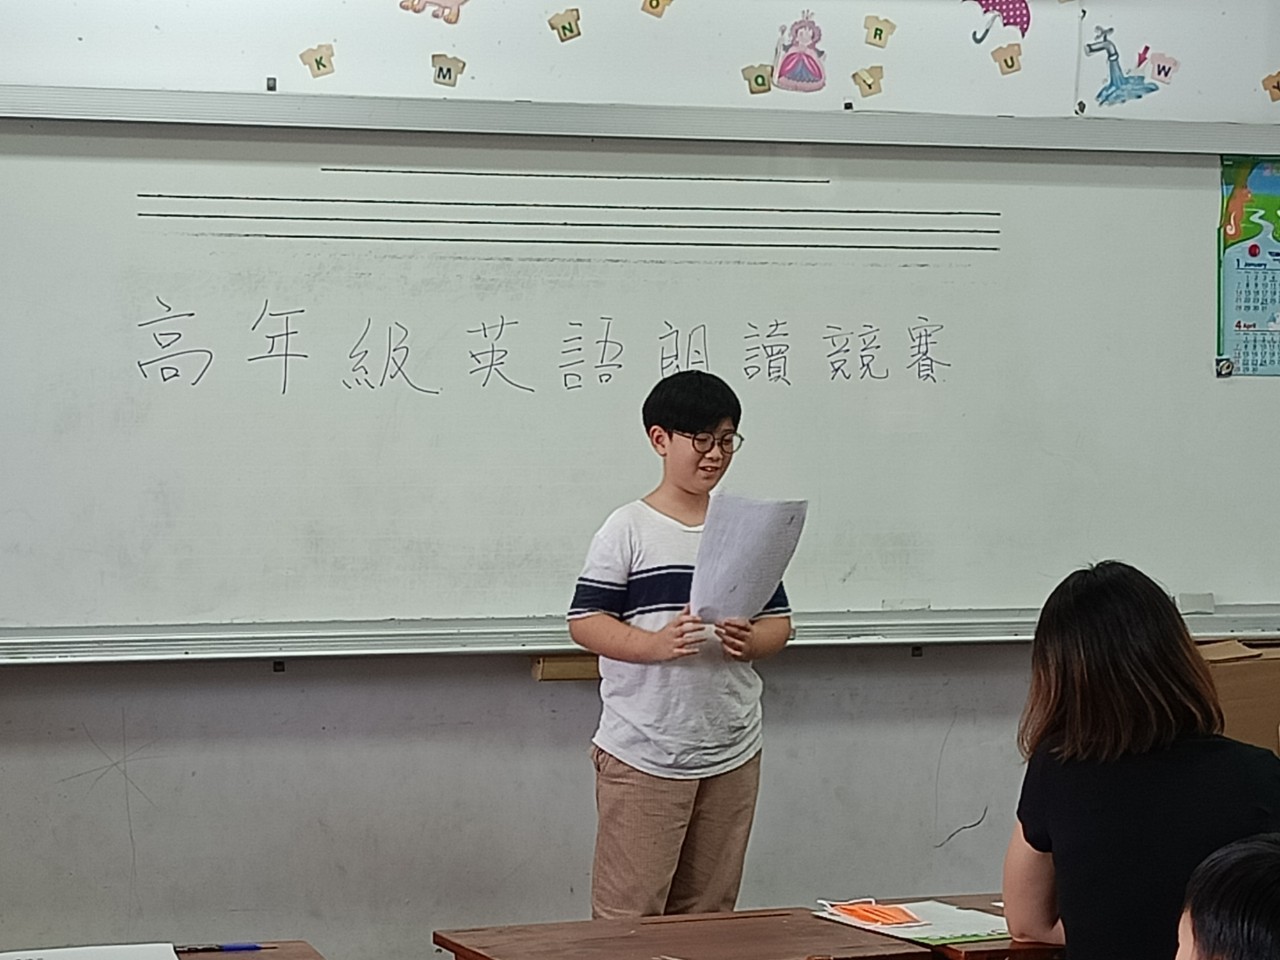 K
M
N
O
Q
R
Y
U
W
高年級英語朗讀競賽
1 January
4 April